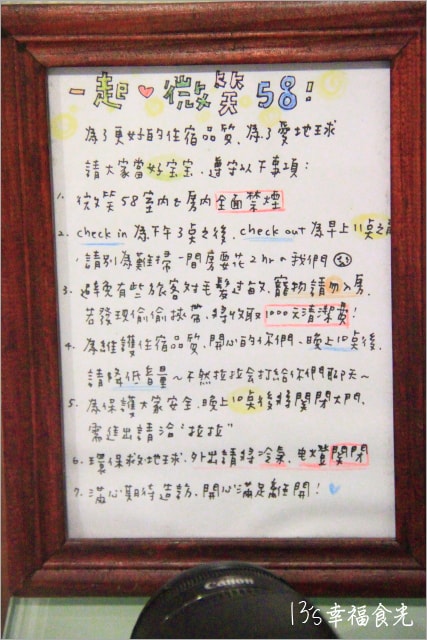 一起♥微笑58：
為了更好的住宿品質、為了愛地球
請大家當好宝宝，遵守以下事項：
1. 微笑58室內&房內全面禁煙
2. check in 為下午3點之後，check out 為早上11點之前
請別為難掃一間房要花2hr的我們
3. 避免有些旅客對毛髮過敏，寵物請勿入房，
若發現偷偷挾帶，將收取1000元清潔費！
4. 為維護住宿品質，開心的你們，晚上10點後，
請降低音量～不然拉拉会打給你們聊天～
5. 為保護大家安全，晚上10點後將関閉大門，
需進出請洽"拉拉"
6. 環保救地球，外出請將冷氣、电燈関閉
7. 滿心期待造訪，開心滿足離開！
Canon
13's幸福食光